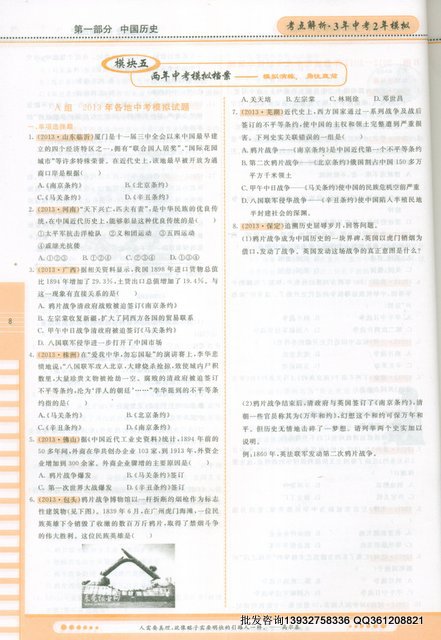 第一部分 中国历史
考点解析·3年中考2年模拟
模块五
两年中考模拟档案
模拟演练,身快直前
A组 2013年各地中考模拟试题
一、单项选择题
1.(2013·山东临沂)厦门是十一届三中全会以来中国最早建
立的四个经济特区之一,拥有“联合国人居奖”、“国际花园
城市”等许多特殊荣誉。在近代史上,该地最早被开放为通
商口岸是根据( )
A.《南京条约》 B.《北京条约》
C.《马关条约》 D.《辛丑条约》
2.(2013·河南)“天下兴亡,匹夫有责”,是中华民族的优良传
统,在中国近代历史上,能够彰显这种优良传统的是( )
①太平军抗击洋枪队 ②义和团运动 ③五四运动
④戚继光抗倭
A.①②③ B.①②④ C.②③④ D.①③④
3.(2013·广西)据相关资料显示,我国1898年进口货物总值
比1894年增加了29.3%,土货出口总值增加了19.4%。与
这一现象有直接关系的是( )
A. 鸦片战争清政府战败被迫签订《南京条约》
B. 左宗棠收复新疆,扩大了同西方各国的贸易联系
C. 甲午中日战争清政府被迫签订《马关条约》
D. 八国联军侵华进一步打开了中国市场
4.(2013·株洲)在“爱我中华,勿忘国耻”的演讲赛上,李华悲
愤地说,“八国联军攻入北京,大肆烧杀抢掠,致使城内尸积
数里,大量珍贵文物被抢劫一空。腐败的清政府被迫签订
不平等条约,沦为‘洋人的朝廷’……”李华提到的不平等条
约指的是( )
A.《马关条约》 B.《北京条约》
C.《南京条约》 D.《辛丑条约》
5.(2013·佛山)据《中国近代工业史资料》统计,1894年前的
50多年间,外商在华共创办企业103家,到1913年,外资企
业增加到300余家。外商企业骤增的主要原因是( )
A. 鸦片战争爆发 B.《马关条约》签订
C. 第一次世界大战爆发 D.《辛丑条约》签订
6.(2013·包头)鸦片战争博物馆以一杆折断的烟枪作为标志
性建筑物(见下图)。1839年6月,在广州虎门海滩,一位民
族英雄下令销毁了收缴的数百万斤鸦片,取得了禁烟斗争
的伟大胜利。这位民族英雄是( )
A. 关天培 B. 左宗棠 C. 林则徐 D. 邓世昌
7.(2013·芜湖)近代史上,西方国家通过一系列战争及战后
签订的不平等条约,使中国的领土和主权完整遭到严重损
害。下列史实关联错误的一组是( )
A. 鸦片战争——《南京条约》是中国近代第一个不平等条约
B. 第二次鸦片战争——《北京条约》俄国割占中国150多万
平方千米领土
C. 甲午中日战争——《马关条约》使中国的民族危机空前严重
D. 八国联军侵华战争——《辛丑条约》使中国陷入半殖民地
半封建社会的深渊。
8.(2013·保定)追溯历史屈辱岁月,回答问题。
(1)鸦片战争成为中国历史的一块界碑,英国以虎门销烟为
借口,发动了战争。英国发动这场战争的真正意图是什么?
(2)鸦片战争结束后,清政府与英国签订了《南京条约》,清
朝一些官员称其为《万年和约》,幻想这个和约可保万年和
平。但历史无情地击碎了一梦想。请列举两个史实加以
说明。
例:1860年,英法联军发动第二次鸦片战争。
8
人需要真理,就像瞎子需要明快的引路人一样。——高尔基
批发咨询13932758336 QQ361208821